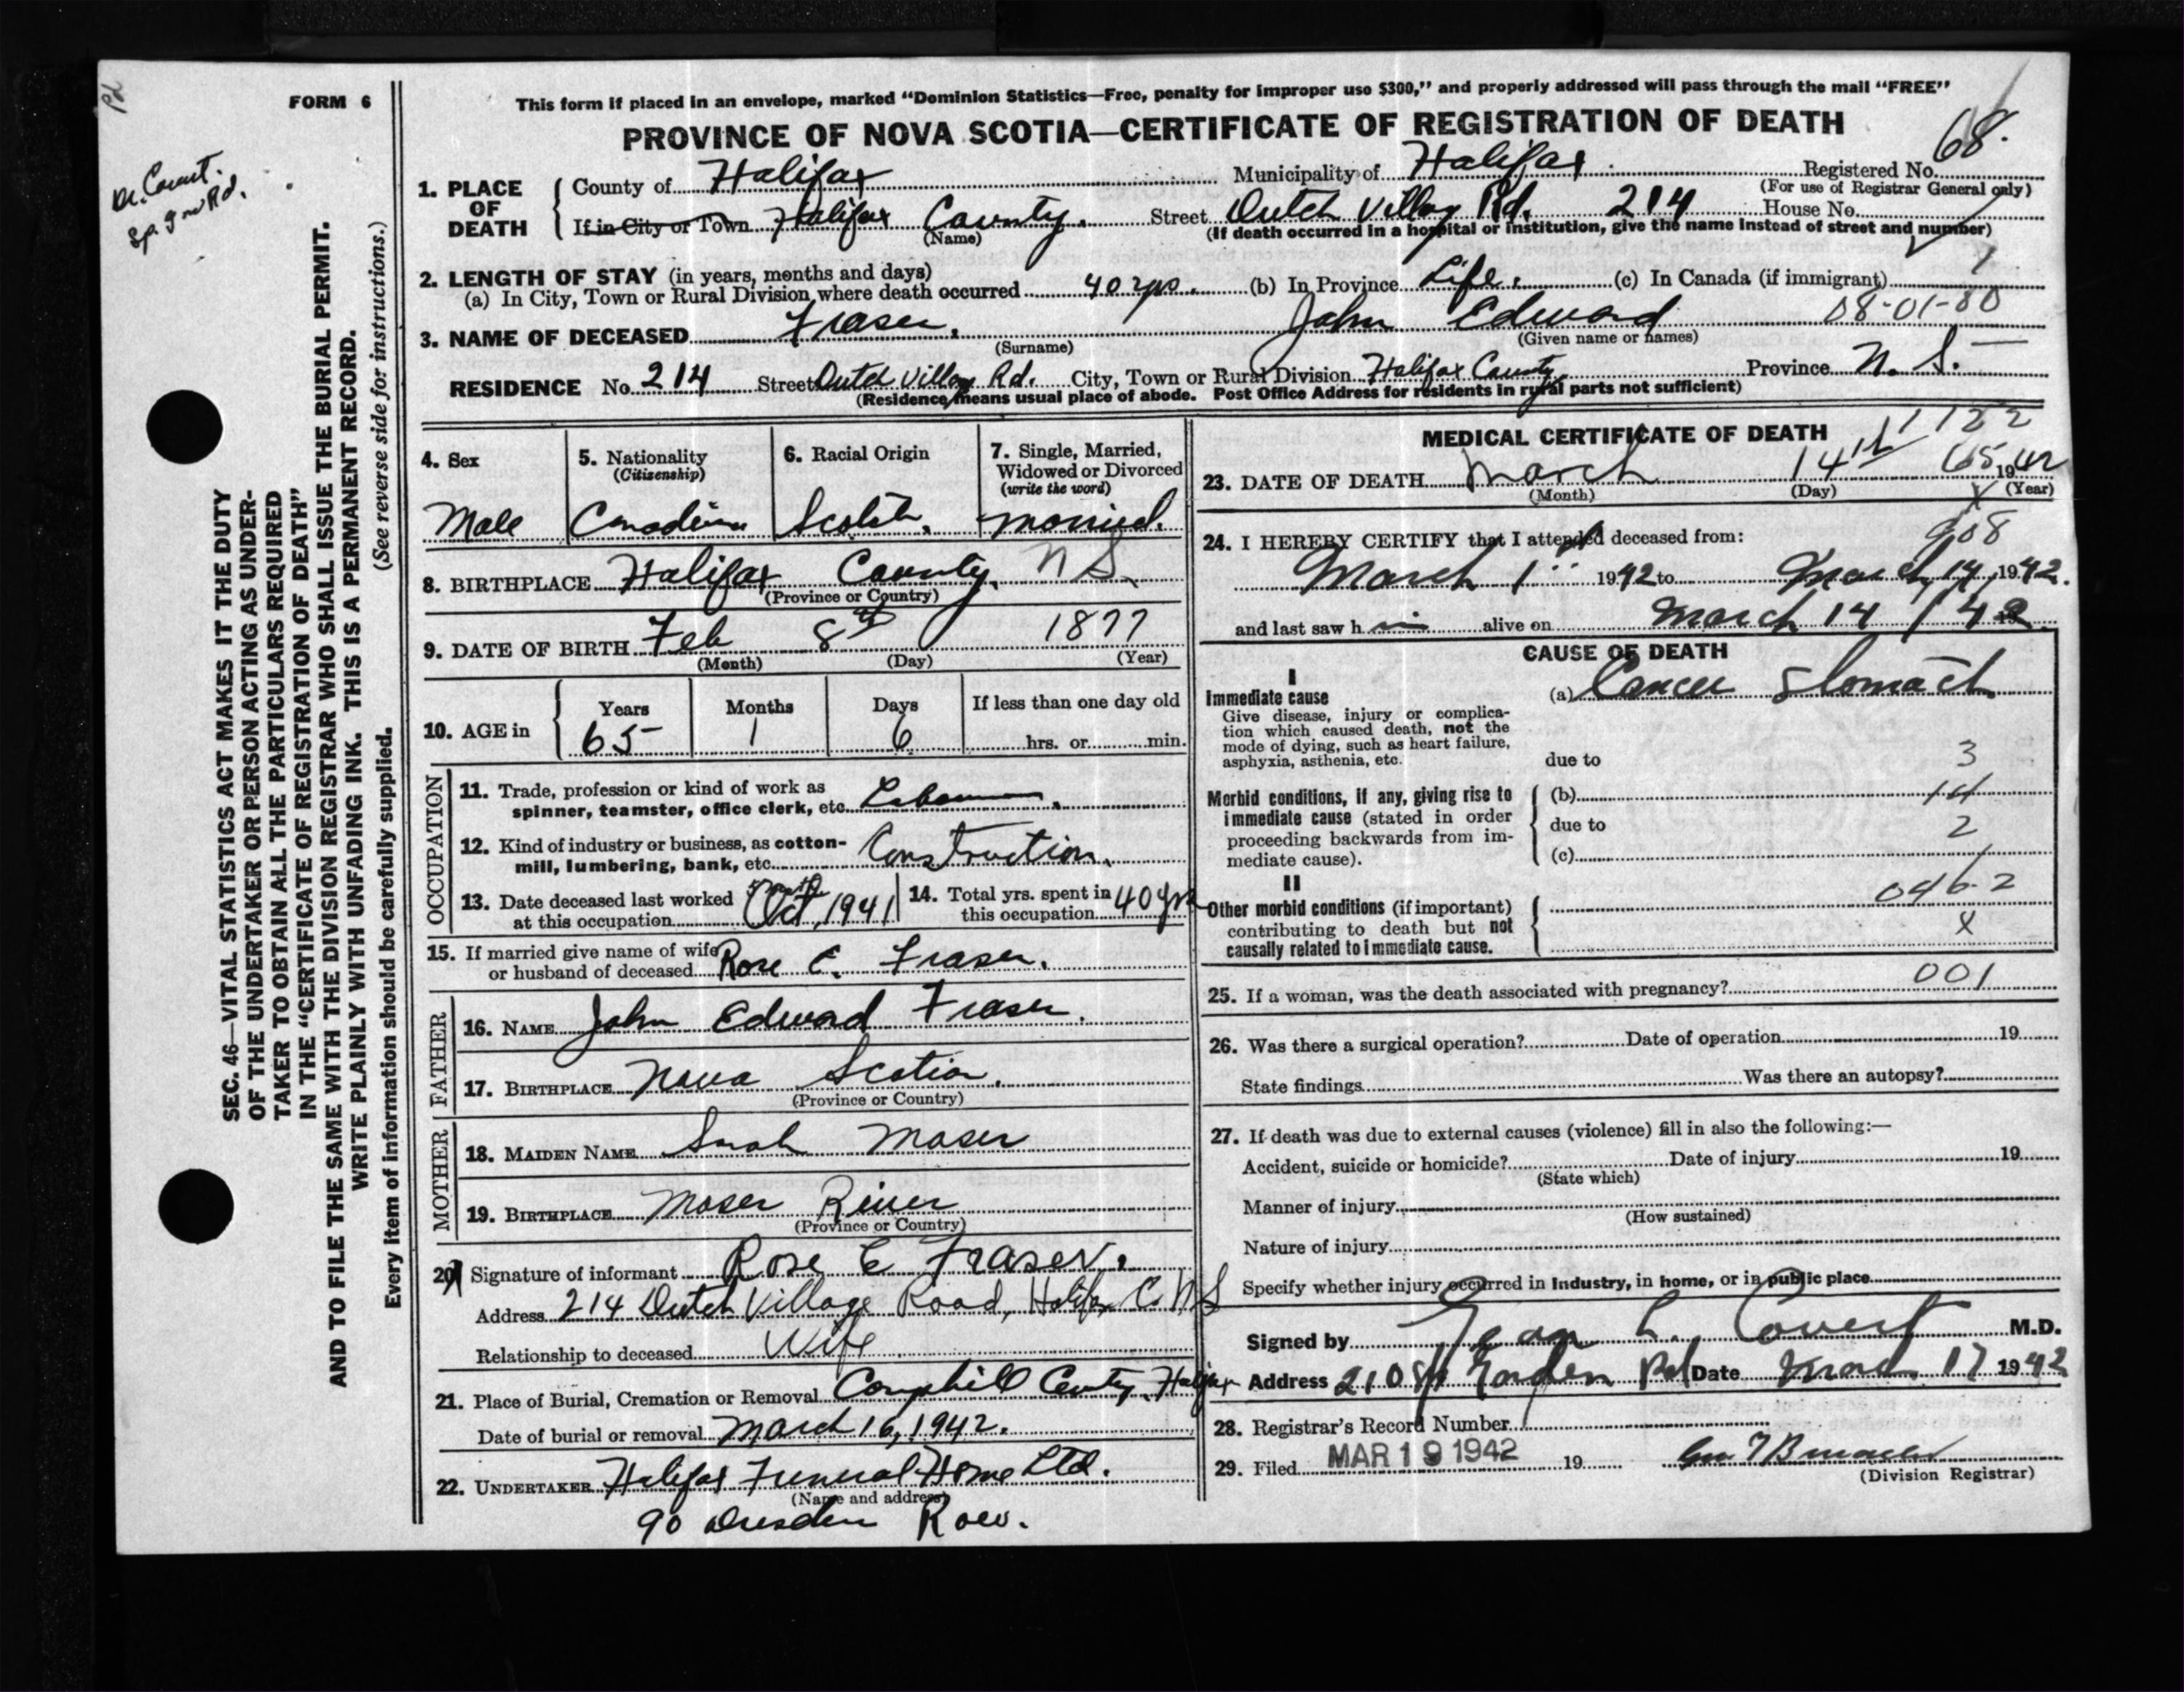 Pd
FORM 6
This form if placed in an envelope, marked “Dominion Statistics—Free, penalty for improper use $300,” and properly addressed will pass through the mail “FREE”
PROVINCE OF NOVA SCOTIA—CERTIFICATE OF REGISTRATION OF DEATH
68.
Dr. Covert.
Sp. Gn Rd.
SEC. 46—VITAL STATISTICS ACT MAKES IT THE DUTY
OF THE UNDERTAKER OR PERSON ACTING AS UNDER-
TAKER TO OBTAIN ALL THE PARTICULARS REQUIRED
IN THE “CERTIFICATE OF REGISTRATION OF DEATH”
AND TO FILE THE SAME WITH THE DIVISION REGISTRAR WHO SHALL ISSUE THE BURIAL PERMIT.
WRITE PLAINLY WITH UNFADING INK. THIS IS A PERMANENT RECORD.
(See reverse side for instructions.)
Every item of information should be carefully supplied.
1. PLACE OF DEATH
County of Halifax Municipality of Halifax Registered No.
(For use of Registrar General only)
If in City or Town Halifax County. Street Dutch Village Rd. 214 House No.
(Name) (If death occurred in a hospital or institution, give the name instead of street and number)
2. LENGTH OF STAY (in years, months and days)
(a) In City, Town or Rural Division where death occurred 40 yrs. (b) In Province Life. (c) In Canada (if immigrant)
3. NAME OF DECEASED Fraser, John Edward 08-01-80
(Surname) (Given name or names)
RESIDENCE No. 214 Street Dutch Village Rd. City, Town or Rural Division Halifax County Province N. S.
(Residence means usual place of abode. Post Office Address for residents in rural parts not sufficient)
4. Sex
Male
5. Nationality
(Citizenship)
Canadian
6. Racial Origin
Scotch.
7. Single, Married,
Widowed or Divorced
(write the word)
Married.
8. BIRTHPLACE Halifax County. N S.
(Province or Country)
9. DATE OF BIRTH Feb 8th 1877
(Month) (Day) (Year)
10. AGE in
Years Months Days If less than one day old
65 1 6 hrs. or min.
OCCUPATION
11. Trade, profession or kind of work as
spinner, teamster, office clerk, etc. Laborer.
12. Kind of industry or business, as cotton-
mill, lumbering, bank, etc. Construction.
13. Date deceased last worked
at this occupation Oct, 1941
14. Total yrs. spent in
this occupation 40 yrs
15. If married give name of wife
or husband of deceased Rose E. Fraser.
FATHER
16. NAME John Edward Fraser.
17. BIRTHPLACE Nova Scotia.
(Province or Country)
MOTHER
18. MAIDEN NAME Sarah Moser
19. BIRTHPLACE Moser River
(Province or Country)
20. Signature of informant Rose E Fraser.
Address 214 Dutch Village Road, Halifax Co. N S
Relationship to deceased Wife
21. Place of Burial, Cremation or Removal Camphill Cemty, Halifax
Date of burial or removal March 16, 1942.
22. UNDERTAKER Halifax Funeral Home Ltd.
(Name and address)
90 Dresden Row.
MEDICAL CERTIFICATE OF DEATH
1122
23. DATE OF DEATH March 14th 65 1942
(Month) (Day) (Year)
24. I HEREBY CERTIFY that I attended deceased from: 908
March 1 1942 to March 14, 1942.
and last saw him alive on March 14 / 42
CAUSE OF DEATH
I
Immediate cause
Give disease, injury or complica-
tion which caused death, not the
mode of dying, such as heart failure,
asphyxia, asthenia, etc.
(a) Cancer Stomach
due to 3
Morbid conditions, if any, giving rise to
immediate cause (stated in order
proceeding backwards from im-
mediate cause).
(b) 14
due to 2
(c)
II
Other morbid conditions (if important)
contributing to death but not
causally related to immediate cause.
046.2
X
25. If a woman, was the death associated with pregnancy? 001
26. Was there a surgical operation? Date of operation 19
State findings Was there an autopsy?
27. If death was due to external causes (violence) fill in also the following:—
Accident, suicide or homicide? Date of injury 19
(State which)
Manner of injury
(How sustained)
Nature of injury
Specify whether injury occurred in industry, in home, or in public place
Signed by L. Covert M.D.
Address 210 Garden Rd Date March 17 1942
28. Registrar’s Record Number
29. Filed MAR 19 1942 19
(Division Registrar)